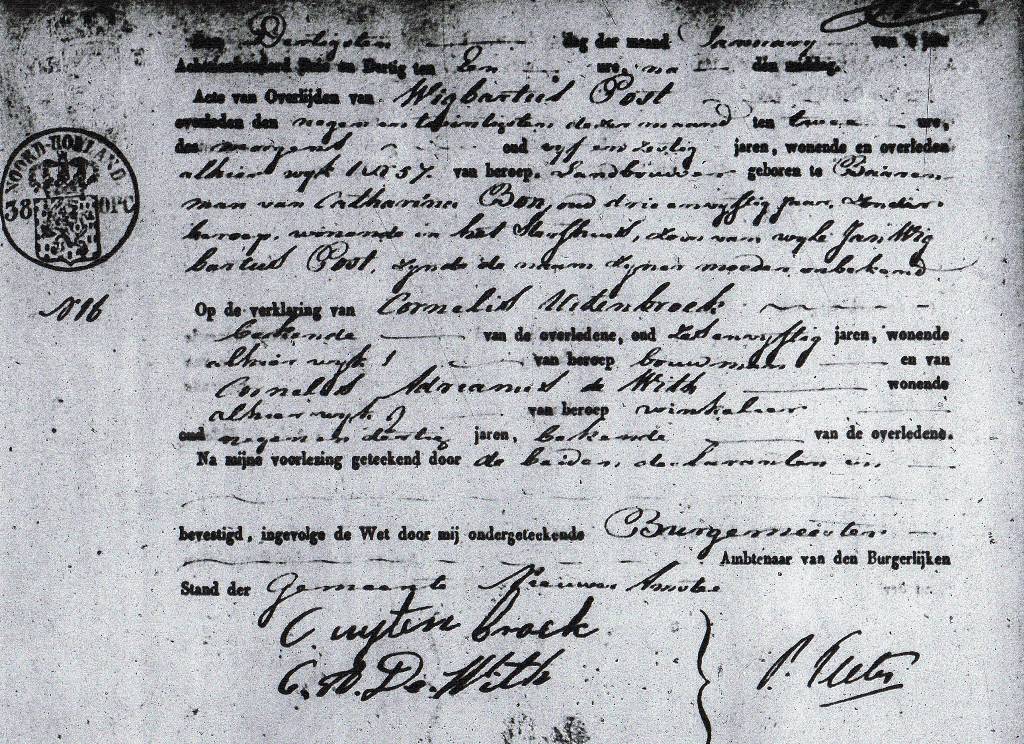 Den Dertigsten dag der maand January van 't jaar
Achttienhonderd Acht en Dertig ten Een ure, na den middag,
Acte van Overlijden van Wigbartus Post
overleden den negen en twintigsten dezer maand ten twee ure,
des morgens oud vyf en zestig jaren, wonende en overleden
alhier wyk 1 N 57. van beroep. Landbouwer geboren te Baaren
man van Catharina Bon, oud drie en vyftig jaar, zonder
beroep, wonende in het Sterfhuis, zoon van wyle Jan Wig
bartus Post, zynde de naam zyner moeder onbekend
N 16
NOORD-HOLLAND
38 OPC
Op de verklaring van Cornelis Uitenbroek
bekende van de overledene, oud zes en vyftig jaren, wonende
alhier wyk 1 van beroep bouwman en van
Cornelis Adrianus de With wonende
alhier wyk van beroep winkelier
oud negen en dertig jaren, bekende van de overledene.
Na mijne voorlezing geteekend door de beiden declaranten en
bevestigd, ingevolge de Wet door mij ondergeteekende Burgemeester
Ambtenaar van den Burgerlijken
Stand der Gemeente Nieuwer Amstel
C uytenbroek
C. A. De With